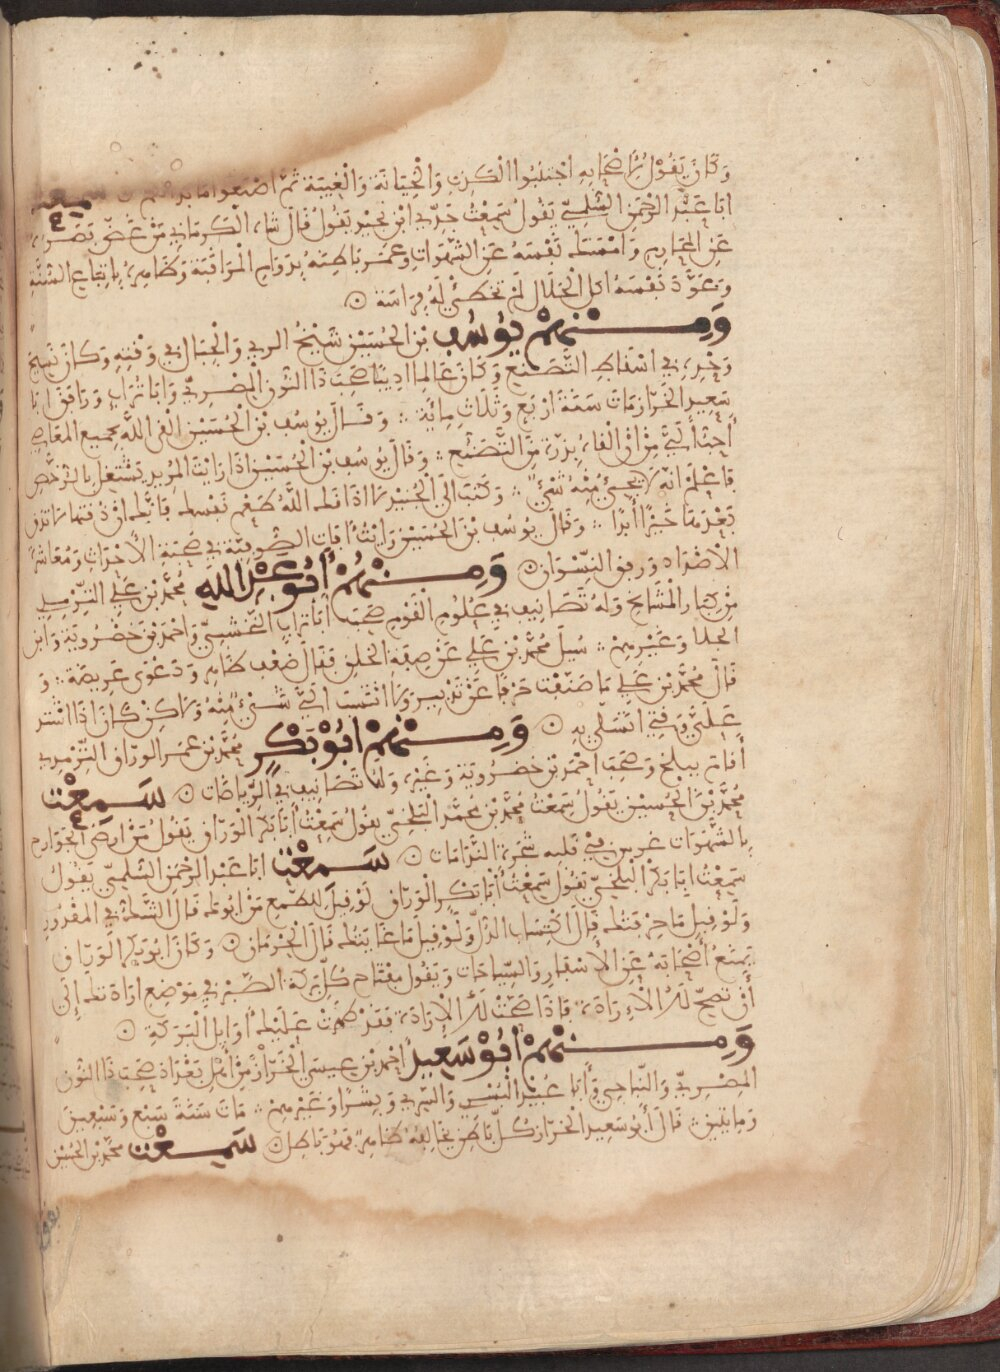 وَكَانَ يَقُوْلُ لِأَصْحَابِهِ اجْتَنِبُوا الْكَذِبَ وَالْخِيَانَةَ وَالْغِيْبَةَ ثُمَّ اصْنَعُوا مَا بدا لكم ۞ سمعت
ابَا عَبْدِ الرَّحْمَنِ السُّلَمِيّ يَقُولُ سَمِعْتُ جَدِّي ابْنَ نُجَيْدٍ يَقُولُ قَالَ شَاه الْكِرْمَانِي مَنْ غَضَّ بَصَرَهُ
عَنِ الْمَحَارِمِ وَامْسَكَ نَفْسَهُ عَنِ الشَّهَوَاتِ وَعَمَّرَ بَاطِنَهُ بِدَوَامِ الْمُرَاقَبَةِ وَظَاهِرَهُ بِاتِّبَاعِ السُّنَّةِ
وَعَوَّدَ نَفْسَهُ اكْلَ الْحَلَالِ لَمْ تُخْطِئْ لَهُ فِرَاسَة ۞
وَمِنْهُمْ يُوسُف بْنُ الحُسَيْنِ شَيْخُ الري وَالْجِبَالِ فِي وَقْتِهِ وَكَانَ نَسِيجَ
وَحْدِهِ فِي اسْقَاطِ التَّصَنُّعِ وَكَانَ عَالِمًا اديبًا صَحِبَ ذَا النُّونِ الْمِصْرِيَّ وَابَا تُرَابٍ وَرَافَقَ ابَا
سَعِيدٍ الْخَرَّازَ مَاتَ سَنَةَ ارْبَعٍ وَثَلَاثِ مِائَةٍ ∴ وَقَالَ يُوسُف بْنُ الْحُسَيْنِ لأن القى اللَّهَ بِجَمِيعِ المَعَاصِي
أَحَبُّ إِلَيَّ مِنْ أَنْ أَلْقَاهُ بِذَرَّةٍ مِنَ التَّصَنُّعِ ∴ وَقَالَ يُوسُف بْنُ الْحُسَيْنِ اذَا رَايْتَ الْمُرِيدَ يَشْتَغِلُ بِالرُّخَصِ
فَاعْلَمْ انَّهُ لَا يَجِيءُ مِنْهُ شَيْءٌ ∴ وَكَتَبَ الَى الْجُنَيْدِ لَا اذَاقَكَ اللَّهُ طَعْمَ نَفْسِكَ فَانَّكَ انْ ذُقْتَهَا لَا تَذُقْ
بَعْدَهَا خَيْرًا أَبَدًا ∴ وَقَالَ يُوسُف بْنُ الْحُسَيْنِ رَايْتُ آفَاتِ الصُّوفِيَّةِ فِي صُحْبَةِ الْأَحْدَاثِ وَمُعَاشَرَةِ
الْأَضْدَادِ وَرِفْقِ النِّسْوَانِ ۞ وَمِنْهُمْ أَبُو عَبْدِ اللَّهِ مُحَمَّدُ بْنُ عَلِي التِّرْمِذِي
مِنْ كِبَارِ الْمَشَايِخِ وَلَهُ تَصَانِيفُ فِي عُلُومِ الْقَوْمِ صَحِبَ أَبَا تُرَابٍ النَّخْشَبِيَّ وَاحْمَدَ بْنَ خَضْرَوَيْهِ وَابْنَ
الجلا وَغَيْرَهُمْ ∴ سُئِلَ مُحَمَّدُ بْنُ عَلِي عَنْ صِفَةِ الْخَلْقِ فَقَالَ ضَعْف ظَاهِر وَدَعْوَى عَرِيضَة ∴ وَ
قَالَ مُحَمَّدُ بْنُ عَلِي مَا صَنَّفْتُ حَرْفًا عَنْ تَدْبِيرٍ وَلَا لينْسَبَ الَيَّ شَيْءٌ مِنْهُ وَلَكِنْ كَانَ اذَا اشْتَدَّ
عَلَيَّ وَقْتِي اتَسَلَّى بِهِ ۞ وَمِنْهُمْ ابُوْ بَكْرٍ مُحَمَّدُ بْنُ عُمَرَ الوَرَّاق التِّرْمِذِي
أَقَامَ بِبَلْخ وَصَحِبَ احْمَدَ بْنَ خَضْرَوَيْهِ وَغَيْرَهُ وَلَهُ تَصَانِيفُ فِي الرِّيَاضَات ۞ سَمِعْتُ
مُحَمَّدَ بْنَ الْحُسَيْنِ يَقُولُ سَمِعْتُ مُحَمَّدَ بْنَ مُحَمَّدٍ الْبَلْخِيَّ يَقُولُ سَمِعْتُ أَبَا بَكْرٍ الْوَرَّاقَ يَقُولُ مَنْ أَرْضَى الْجَوَارِحَ
بِالشَّهَوَاتِ غَرَسَ فِي قَلْبِهِ شَجَرَةَ النَّدَامَاتِ ۞ سَمِعْتُ ابَا عَبْدِ الرَّحْمَنِ السُّلَمِيَّ يَقُولُ
سَمِعْتُ ابَا بَكْرٍ الْبَلْخِيَّ يَقُولُ سَمِعْتُ أَبَا بَكْرٍ الْوَرَّاقَ لَوْ قِيلَ لِلطَّمَعِ مَنْ ابُوكَ قَالَ الشَّكُّ فِي الْمَقْدُورِ
وَلَوْ قِيلَ مَا حِرْفَتُكَ قَالَ اكْتِسَابُ الذُّلِّ وَلَوْ قِيلَ مَا غَايَتُكَ قَالَ الْحِرْمَان ۞ وَكَانَ ابُوْ بَكْرٍ الْوَرَّاق
يَمْنَعُ أَصْحَابَهُ عَنِ الْأَسْفَارِ وَالسِّيَاحَاتِ وَيَقُولُ مِفْتَاحُ كُلِّ بَرَكَةٍ الصَّبْرُ فِي مَوْضِعِ ارَادَتِكَ إِلَى
أَنْ تَصِحَّ لَكَ الْإِرَادَةُ فَاذَا صَحَّتْ لَكَ الْإِرَادَةُ فَقَدْ ظَهَرَتْ عَلَيْكَ أَوَايِلُ الْبَرَكَةِ ۞
وَمِنْهُمْ أَبُوْ سَعِيدٍ احْمَدُ بْنُ عِيسَى الْخَرَّازُ مِنْ أَهْلِ بَغْدَادَ صَحِبَ ذَا النُّونِ
الْمِصْرِيَّ وَالنِّبَاجِيَّ وَأَبَا عُبَيْدٍ الْبُسْرِي وَالسَّرِي وَبِشْرًا وَغَيْرَهُمْ ∴ مَاتَ سَنَةَ سَبْعٍ وَسَبْعِينَ
وَمِايتَيْن ∴ قَالَ أَبُو سَعِيدٍ الْخَرَّاز كُلُّ بَاطِنٍ يُخَالِفُهُ ظَاهِرٌ فَهُوَ بَاطِل ۞ سَمِعْتُ مُحَمَّدَ بْنَ الحُسَيْن